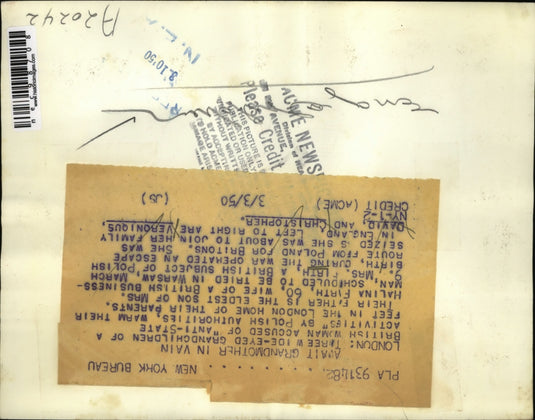 PLA 931482 . . . . . . . NEW YORK BUREAU
AWAIT GRANDMOTHER IN VAIN
LONDON: THREE WIDE-EYED GRANDCHILDREN OF A
BRITISH WOMAN ACCUSED OF "ANTI-STATE
ACTIVITIES" BY POLISH AUTHORITIES, WARM THEIR
FEET IN THE LONDON HOME OF THEIR PARENTS.
THEIR FATHER IS THE ELDEST SON OF MRS.
HALINA FIRTH, 60, WIFE OF A BRITISH BUSINESS-
MAN, SCHEDULED TO BE TRIED IN WARSAW, MARCH
9. MRS. FIRTH, A BRITISH SUBJECT OF POLISH
BIRTH, DURING THE WAR OPERATED AN ESCAPE
ROUTE FROM POLAND FOR BRITONS. SHE WAS
SEIZED AS SHE WAS ABOUT TO JOIN HER FAMILY
IN ENGLAND. LEFT TO RIGHT ARE VERONIQUE,
DAVID AND CHRISTOPHER.
NY-1-2
CREDIT (ACME) 3/3/50 (JS)
ACME NEWS
Please Credit
THIS PICTURE IS
PUBLICATION ONLY
WITHOUT WRITTEN
8.10'50
A20242